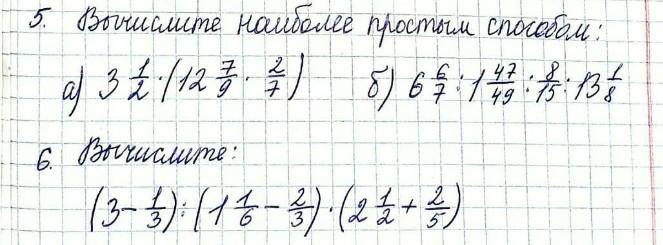 5. Вычислите наиболее простым способом:
а) 3 1/2 · (12 7/9 · 2/7) б) 6 6/7 : 1 47/49 : 8/15 : 13 1/8
6. Вычислите:
(3 - 1/3) : (1 1/6 - 2/3) · (2 1/2 + 2/5)